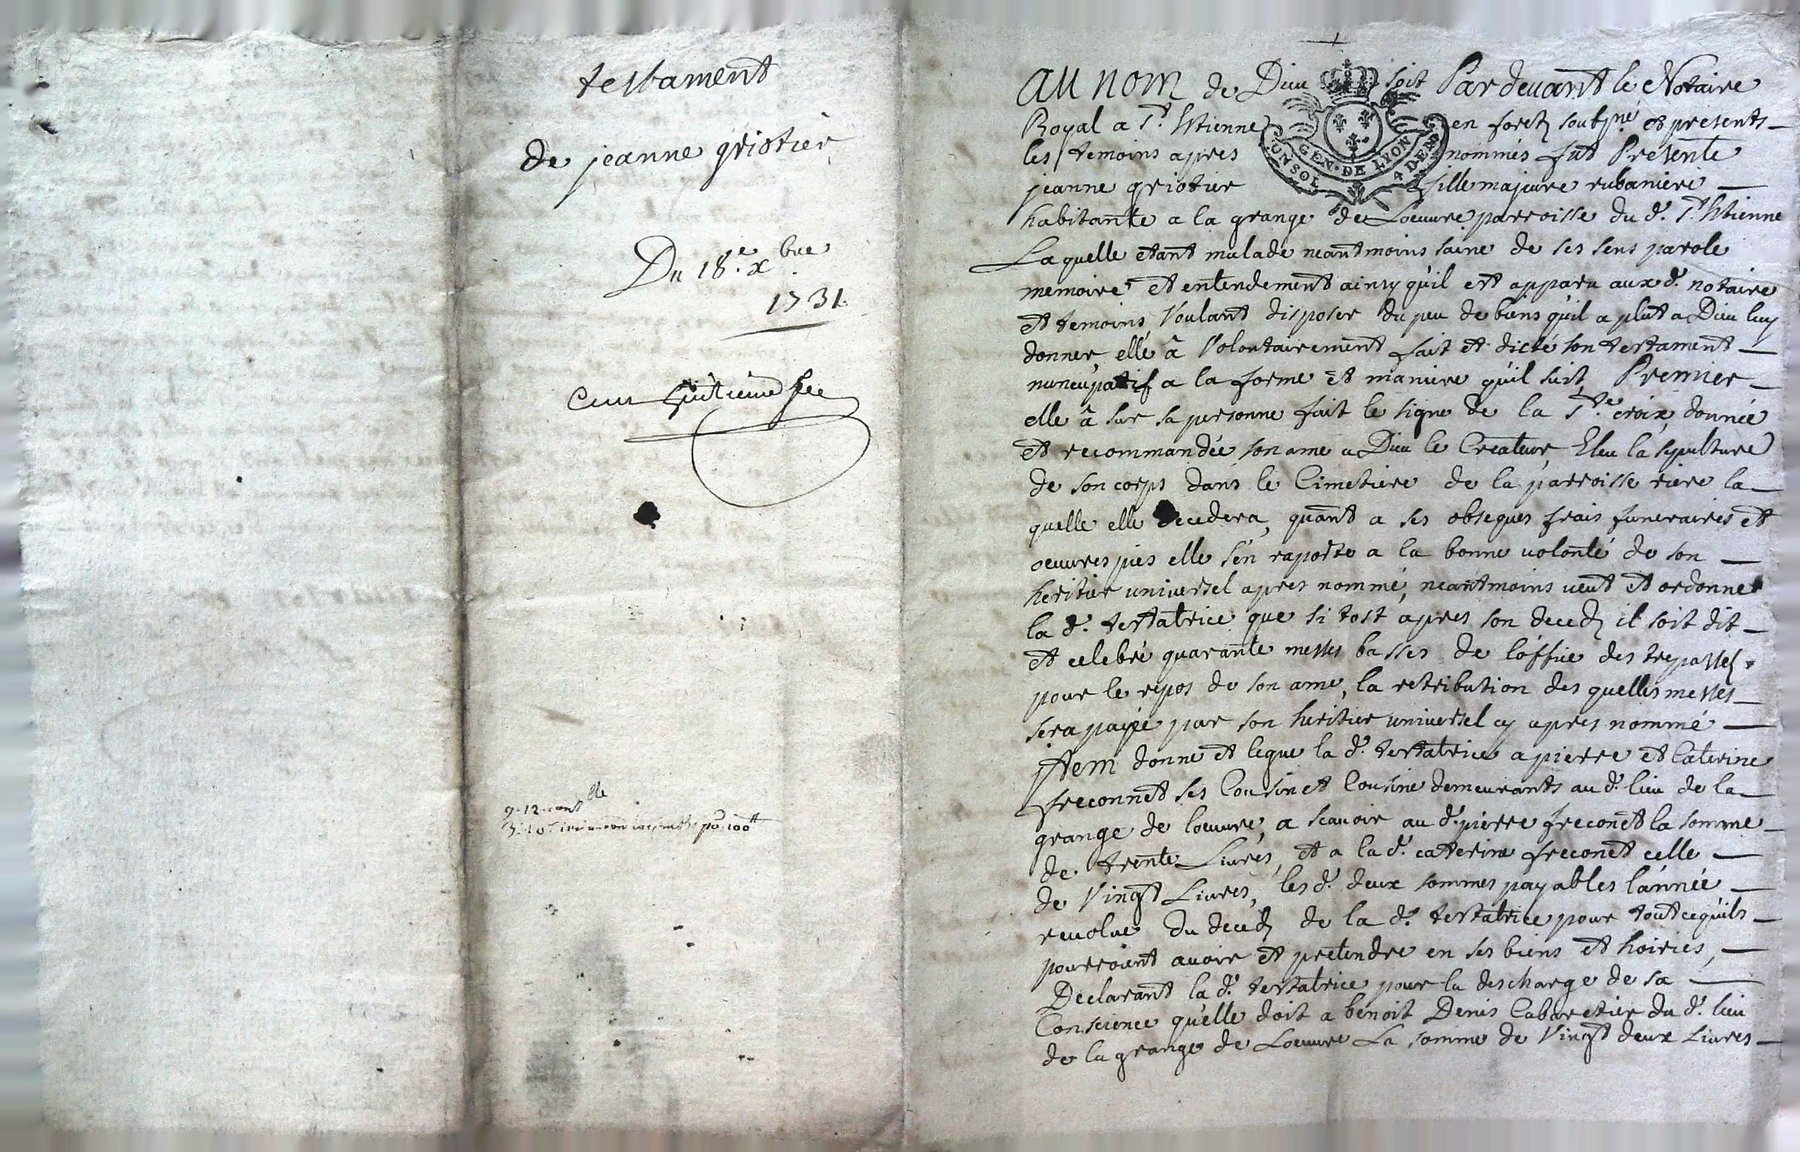 testament
de jeanne griotier
Du 18.e xbre
1731.
Cent huitieme
Au nom de Dieu soit Pardevant le Notaire
Royal a St. Etienne en foretz soubsné et presents
les temoins apres nommés fut Presente
jeanne griotier fille majeure rubaniere
habitante a la grange de Loeuvre parroisse du d. St. Etienne
Laquelle etant malade neantmoins saine de ses sens parole
memoire et entendement ainsy qu'il est apparu aux d. notaire
et temoins Voulant disposer du peu de biens qu'il a plut a Dieu luy
donner elle â Volontairement fait et dicté son testament
nuncupatif a la forme et maniere qu'il suit, Premier
elle â sur sa personne fait le signe de la Ste. croix, donnée
et recommandée son ame a Dieu le Createur, Eleu la sepulture
de son corps dans le Cimetiere de la parroisse riere la
quelle elle decedera, quant a ses obseques frais funeraires et
oeuvres pies elle s'en raporte a la bonne volonté de son
heritier universel apres nommé, neantmoins veut et ordonne
la d. testatrice que si tost apres son decedz il soit dit
et celebré quarante messes basses de l'office des trepassés
pour le repos de son ame, la retribution des quelles messes
sera payée par son heritier universel cy apres nommé
jtem donne et legue la d. testatrice a pierre et Caterine
freconnet ses Cousin et Cousine demeurants au d. lieu de la
grange de loeuvre, a scavoir au d. pierre freconet la somme
de trente Livres, et a la d. caterine freconet celle
de Vingt Livres, les d. deux sommes payables l'année
revolue du decedz de la d. testatrice pour tout ce qu'ils
pourroient avoir et pretendre en ses biens et hoiries,
Declarant la d. testatrice pour la descharge de sa
Conscience qu'elle doit a benoit Denis Cabaretier du d. lieu
de la grange de Loeuvre La somme de Vingt deux Livres
GEN. DE LYON
UN SOL 4 DEN.